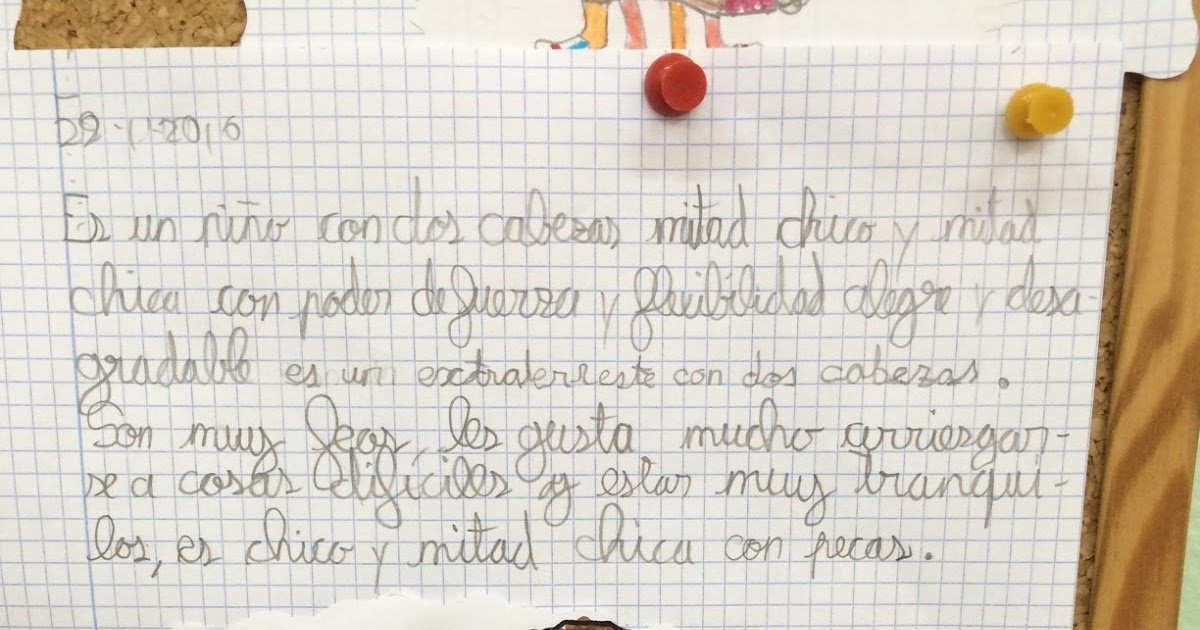 29-11-2016
Es un niño con dos cabezas mitad chico y mitad
chica con poder de fuerza y flexibilidad alegre y desa-
gradable es un extraterreste con dos cabezas.
Son muy feos, les gusta mucho arriesgar-
se a cosas difíciles y estar muy tranqui-
los, es chico y mitad chica con pecas.